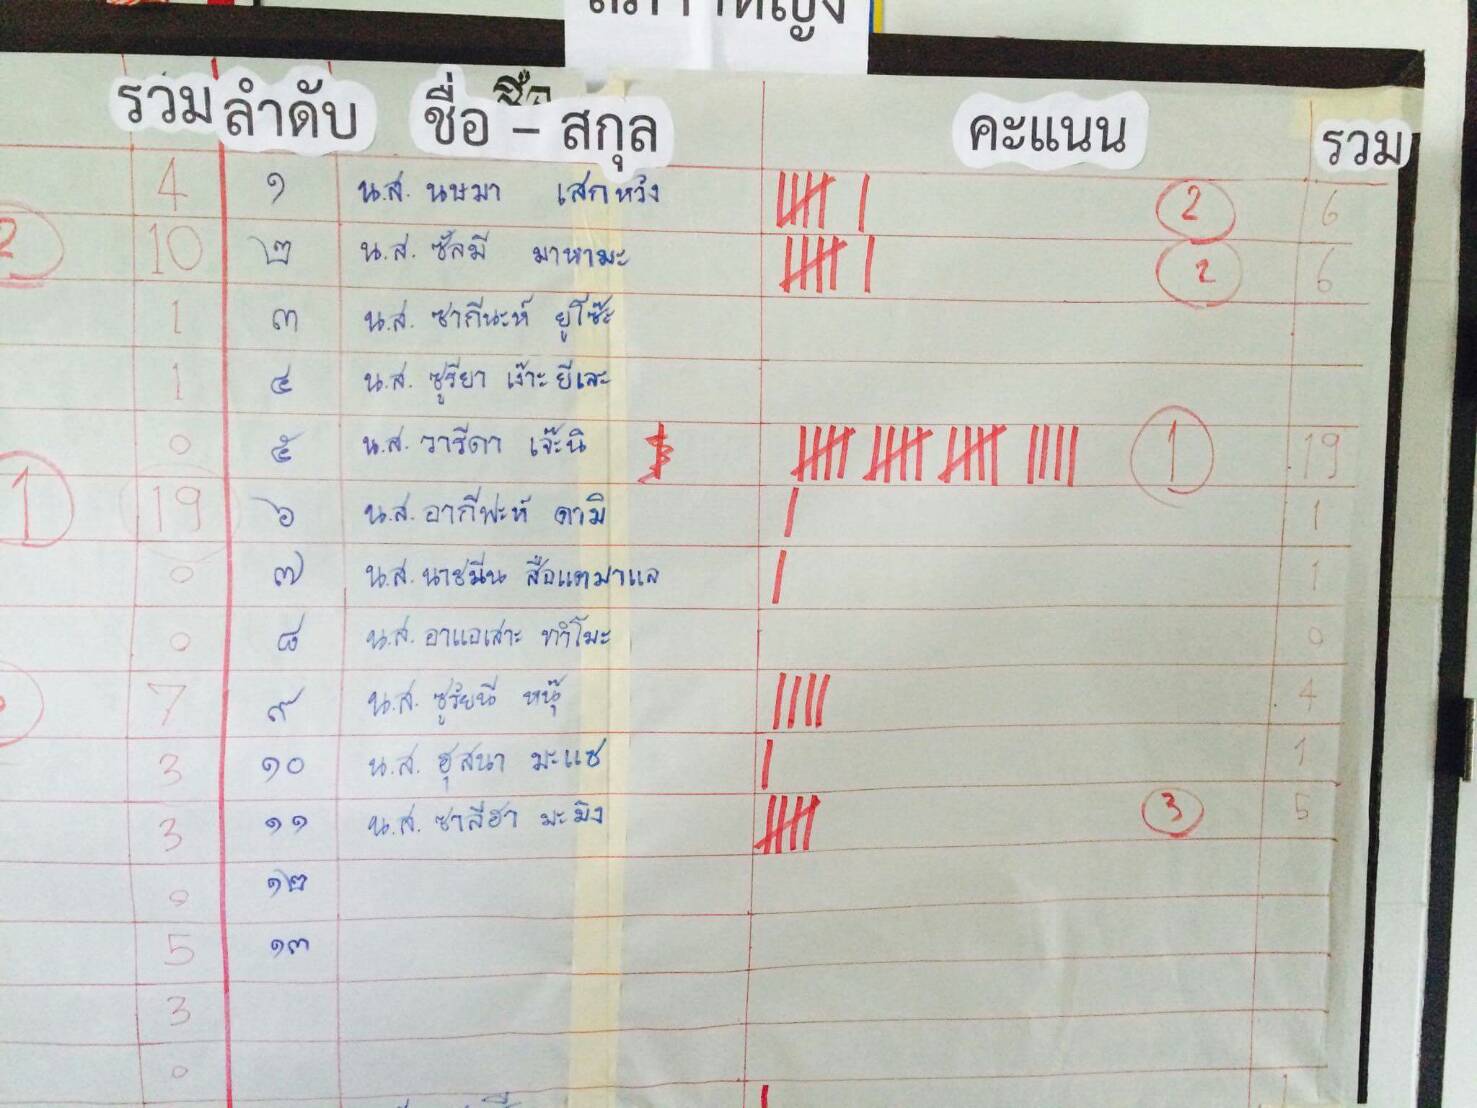 รวม ลำดับ ชื่อ - สกุล คะแนน รวม
4 ๑ น.ส. นษมา เสกหวัง 2 6
2 10 ๒ น.ส. ซัลมี มาหามะ 2 6
1 ๓ น.ส. ซากีนะห์ ยูโซ๊ะ
1 ๔ น.ส. ซูรียา เง๊าะยีเละ
0 ๕ น.ส. วารีดา เจ๊ะนิ 1 19
1 19 ๖ น.ส. อากีฟะห์ ดามิ 1
0 ๗ น.ส. นาซมีน สือแตมาแล 1
0 ๘ น.ส. อาแอเสาะ 0
7 ๙ น.ส. ซูรัยนี หนุ๊ 4
3 ๑๐ น.ส. ฮุสนา มะแซ 1
3 ๑๑ น.ส. ซาลีฮา มะมิง 3 5
0 ๑๒
5 ๑๓
3
0